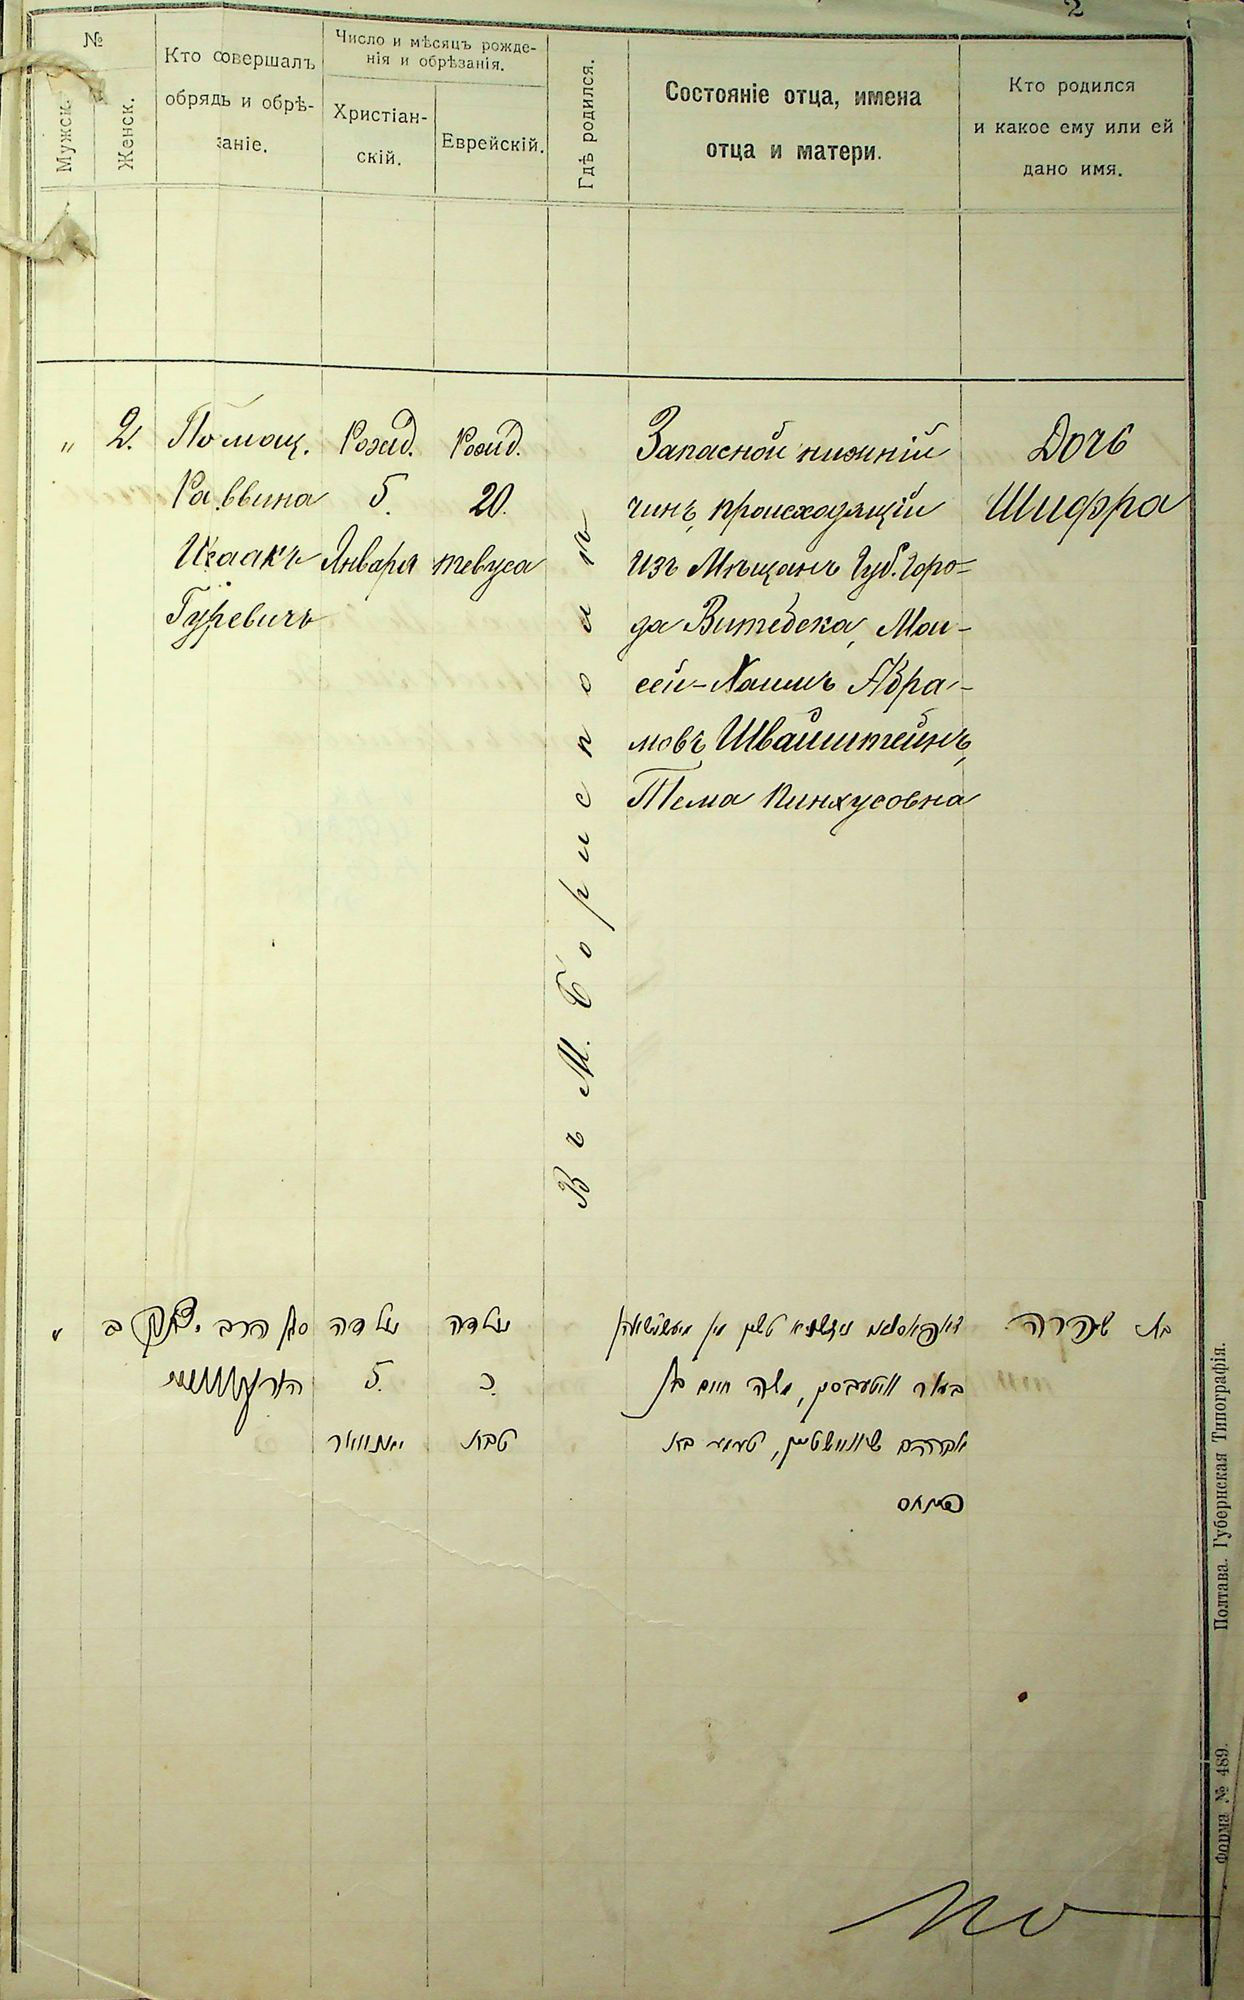 2
№
Мужск.
Женск.
Кто совершалъ
обрядъ и обрѣ-
заніе.
Число и мѣсяцъ рожде-
нія и обрѣзанія.
Христіан-
скій.
Еврейскій.
Гдѣ родился.
Состояніе отца, имена
отца и матери.
Кто родился
и какое ему или ей
дано имя.
" 2.
Помощ.
Раввина
Исаакъ
Гуревичъ
Рожд.
5.
Января
Рожд.
20.
тевуса
Въ М. Борисполѣ
Запасной нижній
чинъ, происходящій
изъ Мѣщанъ Губ. Горо-
да Витебска, Мои-
сей-Хаимъ Абра-
мовъ Швайнштейнъ,
Тема Пинхусовна
Дочь
Шифра
" ב
סגן הרב יצחק
נולדה
5.
יאנוואר
נולדה
כ
טבת
וויטעבסק, משה חיים בן
אברהם שוויינשטיין, טעמע בת
פינחס
בת שיפרה
Полтава. Губернская Типографія.
Форма № 489.